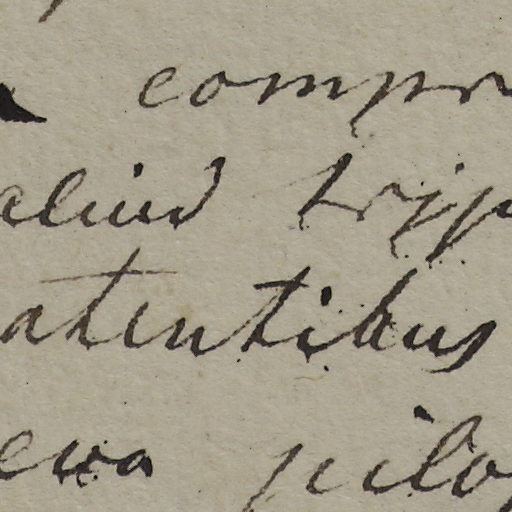 compr
aliud tripp
atentibus
eva pilo